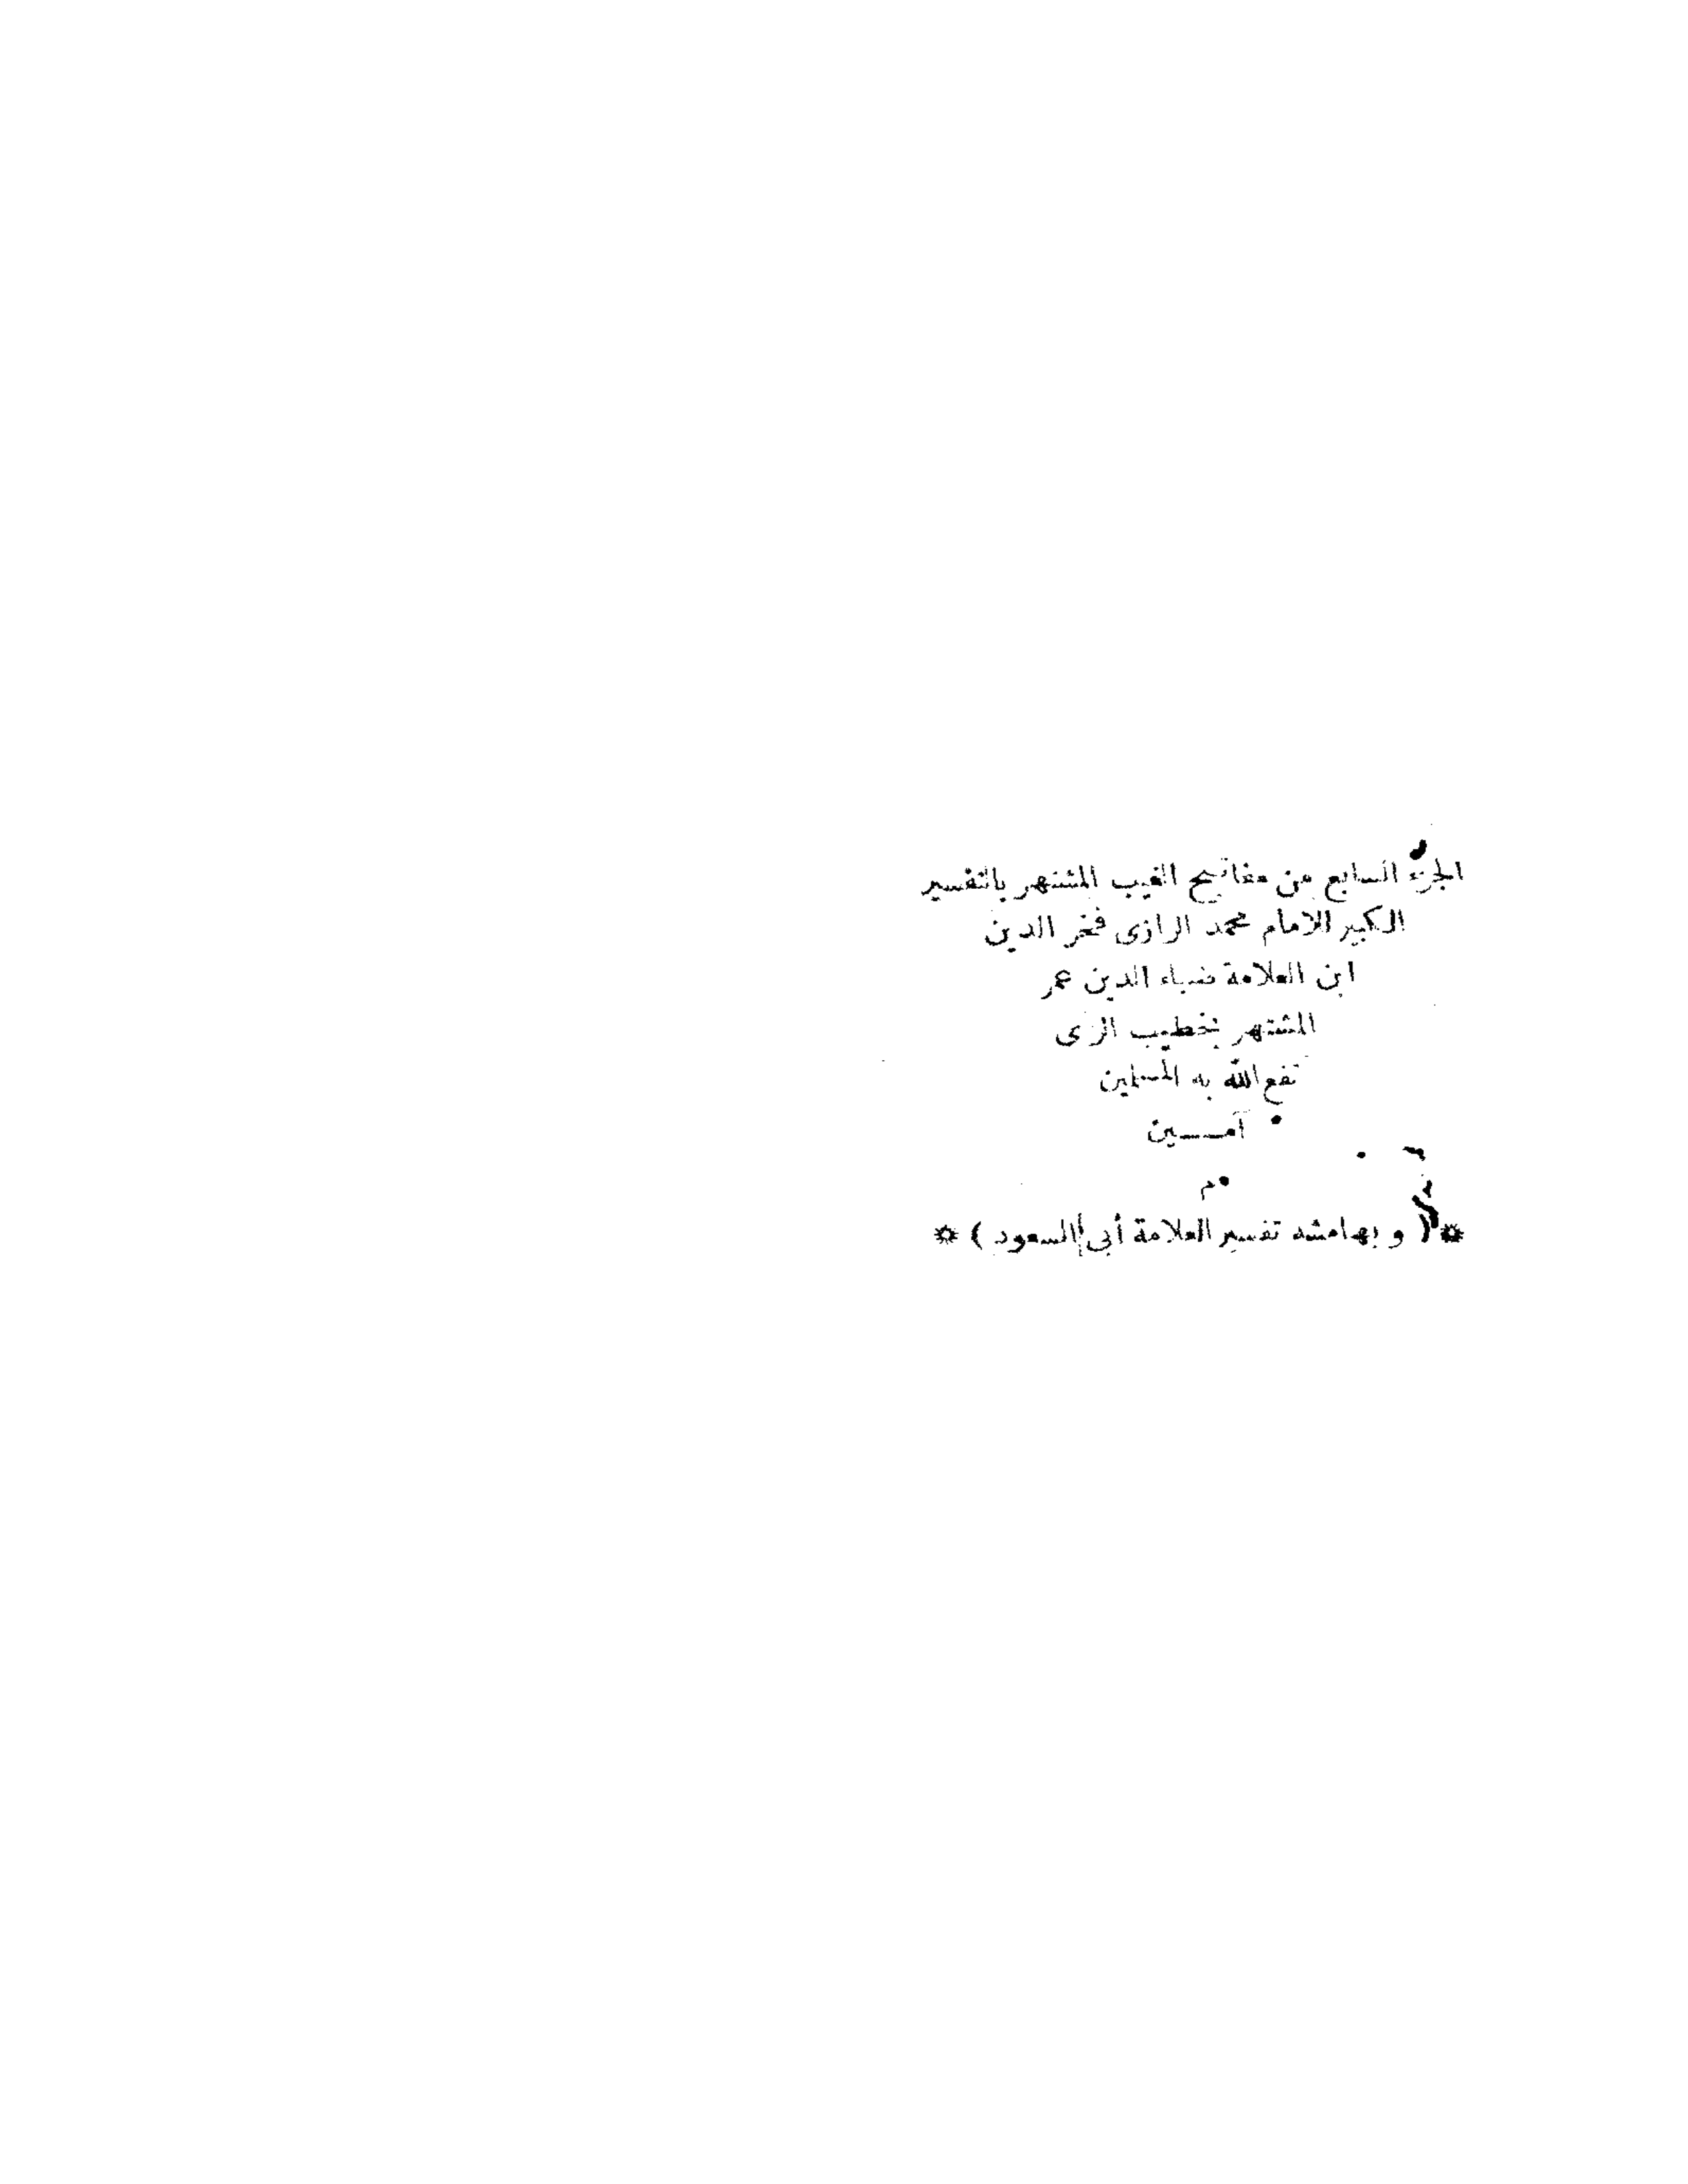 الجزء السابع من مفاتيح الغيب المشتهر بالتفسير
الكبير للامام محمد الرازى فخر الدين
ابن العلامة ضياء الدين عمر
المشتهر بخطيب الرى
نفع الله به المسلمين
آمـــين
م
* ( وبهامشه تفسير العلامة أبى السعود ) *